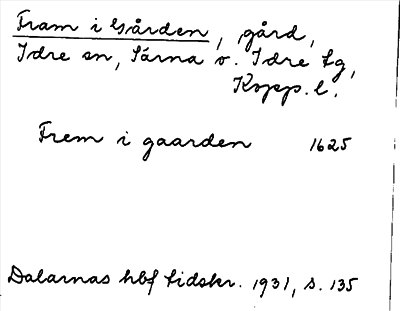 Fram i Gården, gård,
Idre sn, Särna o. Idre tg,
Kopp. l.
Frem i gaarden 1625
Dalarnas hbf tidskr. 1931, s. 135